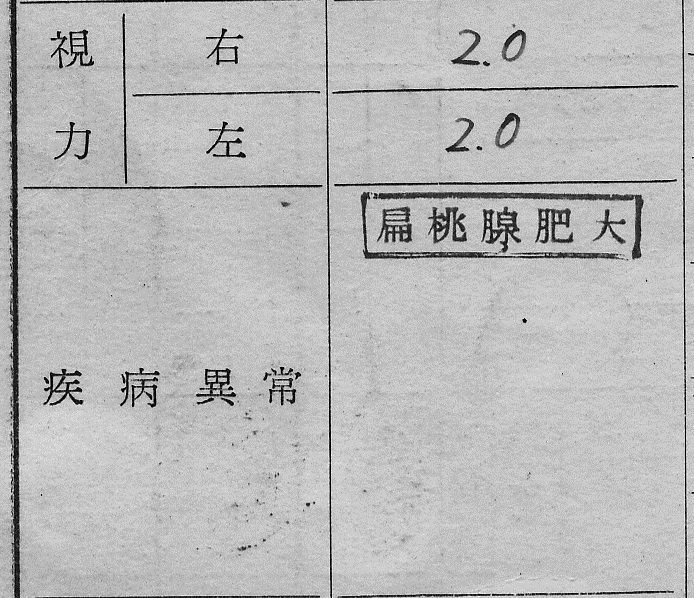 視力
右 2.0
左 2.0
疾病異常 扁桃腺肥大